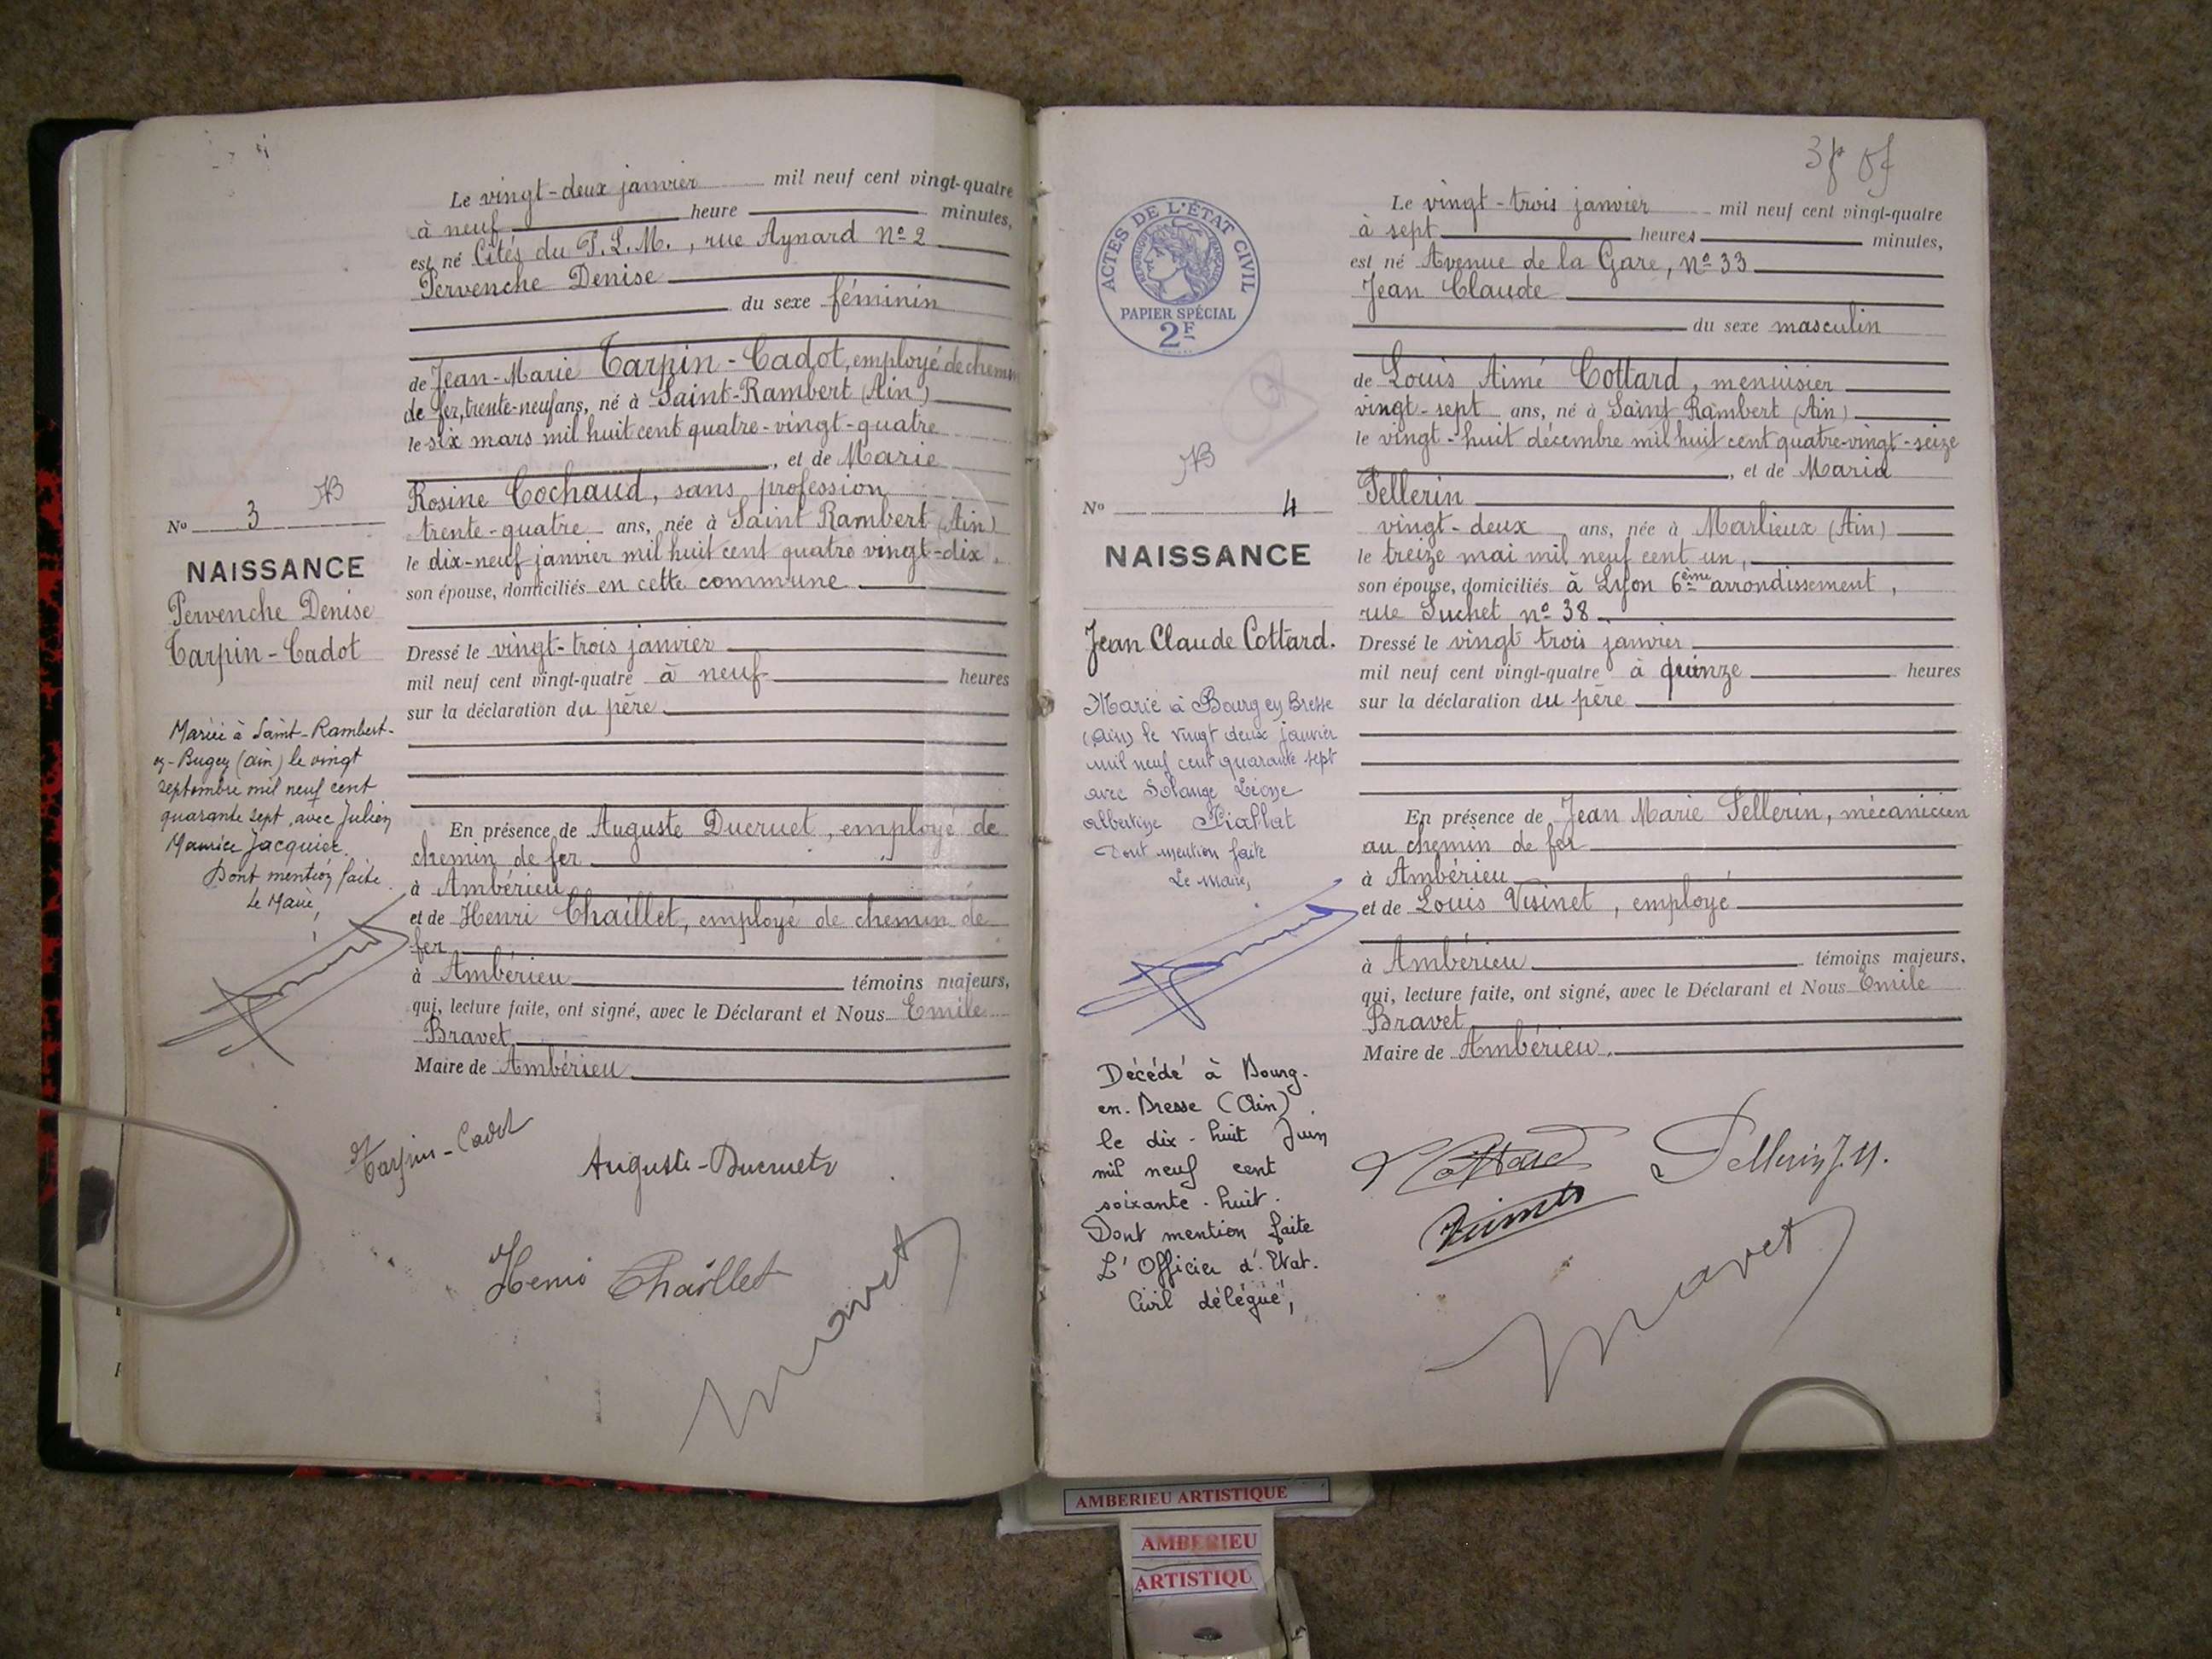 Le vingt-deux janvier mil neuf cent vingt-quatre
à neuf heure minutes,
est né Cités du P.L.M., rue Aynard nº 2
Pervenche Denise
du sexe féminin
de Jean-Marie Tarpin-Cadot, employé de chemin
de fer, trente-neuf ans, né à Saint-Rambert (Ain)
le six mars mil huit cent quatre-vingt-quatre
, et de Marie
Rosine Cochaud, sans profession
trente-quatre ans, née à Saint Rambert (Ain)
le dix-neuf janvier mil huit cent quatre vingt-dix,
son épouse, domiciliés en cette commune
Dressé le vingt-trois janvier
mil neuf cent vingt-quatre à neuf heures
sur la déclaration du père
En présence de Auguste Ducruet, employé de
chemin de fer
à Ambérieu
et de Henri Chaillet, employé de chemin de
fer
à Ambérieu témoins majeurs,
qui, lecture faite, ont signé, avec le Déclarant et Nous Emile
Bravet
Maire de Ambérieu
Nº 3
NAISSANCE
Pervenche Denise
Tarpin-Cadot
Mariée à Saint-Rambert-
en-Bugey (Ain) le vingt
septembre mil neuf cent
quarante sept, avec Julien
Maurice Jacquier
Dont mention faite
Le Maire,
Tarpin-Cadot
Auguste-Ducruet
Henri Chaillet
Bravet
ACTES DE L'ÉTAT CIVIL
RÉPUBLIQUE FRANÇAISE
PAPIER SPÉCIAL
2F
Le vingt-trois janvier mil neuf cent vingt-quatre
à sept heures minutes,
est né Avenue de la Gare, nº 33
Jean Claude
du sexe masculin
de Louis Aimé Cottard, menuisier
vingt-sept ans, né à Saint Rambert (Ain)
le vingt-huit décembre mil huit cent quatre-vingt-seize
, et de Maria
Pellerin
vingt-deux ans, née à Marlieux (Ain)
le treize mai mil neuf cent un,
son épouse, domiciliés à Lyon 6ème arrondissement,
rue Suchet nº 38
Dressé le vingt trois janvier
mil neuf cent vingt-quatre à quinze heures
sur la déclaration du père
En présence de Jean Marie Pellerin, mécanicien
au chemin de fer
à Ambérieu
et de Louis Visinet, employé
à Ambérieu témoins majeurs,
qui, lecture faite, ont signé, avec le Déclarant et Nous Emile
Bravet
Maire de Ambérieu.
Nº 4
NAISSANCE
Jean Claude Cottard.
Marié à Bourg en Bresse
(Ain) le vingt deux janvier
mil neuf cent quarante sept
avec Solange Léone
Albertine
Dont mention faite
Le Maire,
Décédé à Bourg-
en-Bresse (Ain)
le dix-huit Juin
mil neuf cent
soixante-huit.
Dont mention faite
L'Officier d'Etat-
Civil délégué,
Cottard
Pellerin J.M.
Bravet
AMBERIEU ARTISTIQUE
AMBERIEU
ARTISTIQU